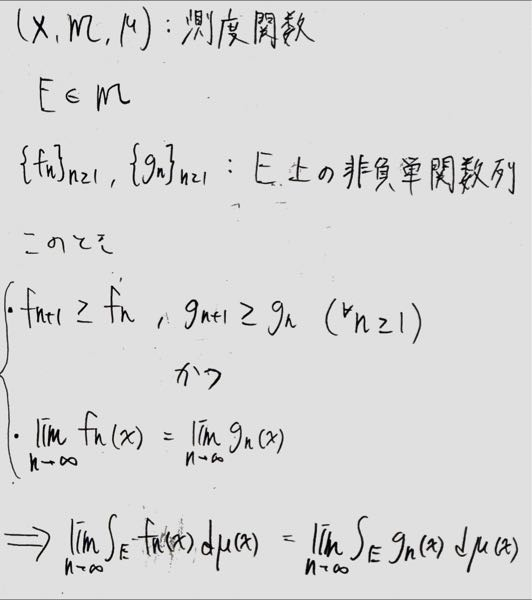 (X, 𝔐, μ) : 測度関数
E ∈ 𝔐
{fn}n≥1 , {gn}n≥1 : E上の非負単関数列
このとき
・fn+1 ≥ fn , gn+1 ≥ gn (∀n ≥ 1)
かつ
・lim n→∞ fn(x) = lim n→∞ gn(x)
⟹ lim n→∞ ∫E fn(x) dμ(x) = lim n→∞ ∫E gn(x) dμ(x)